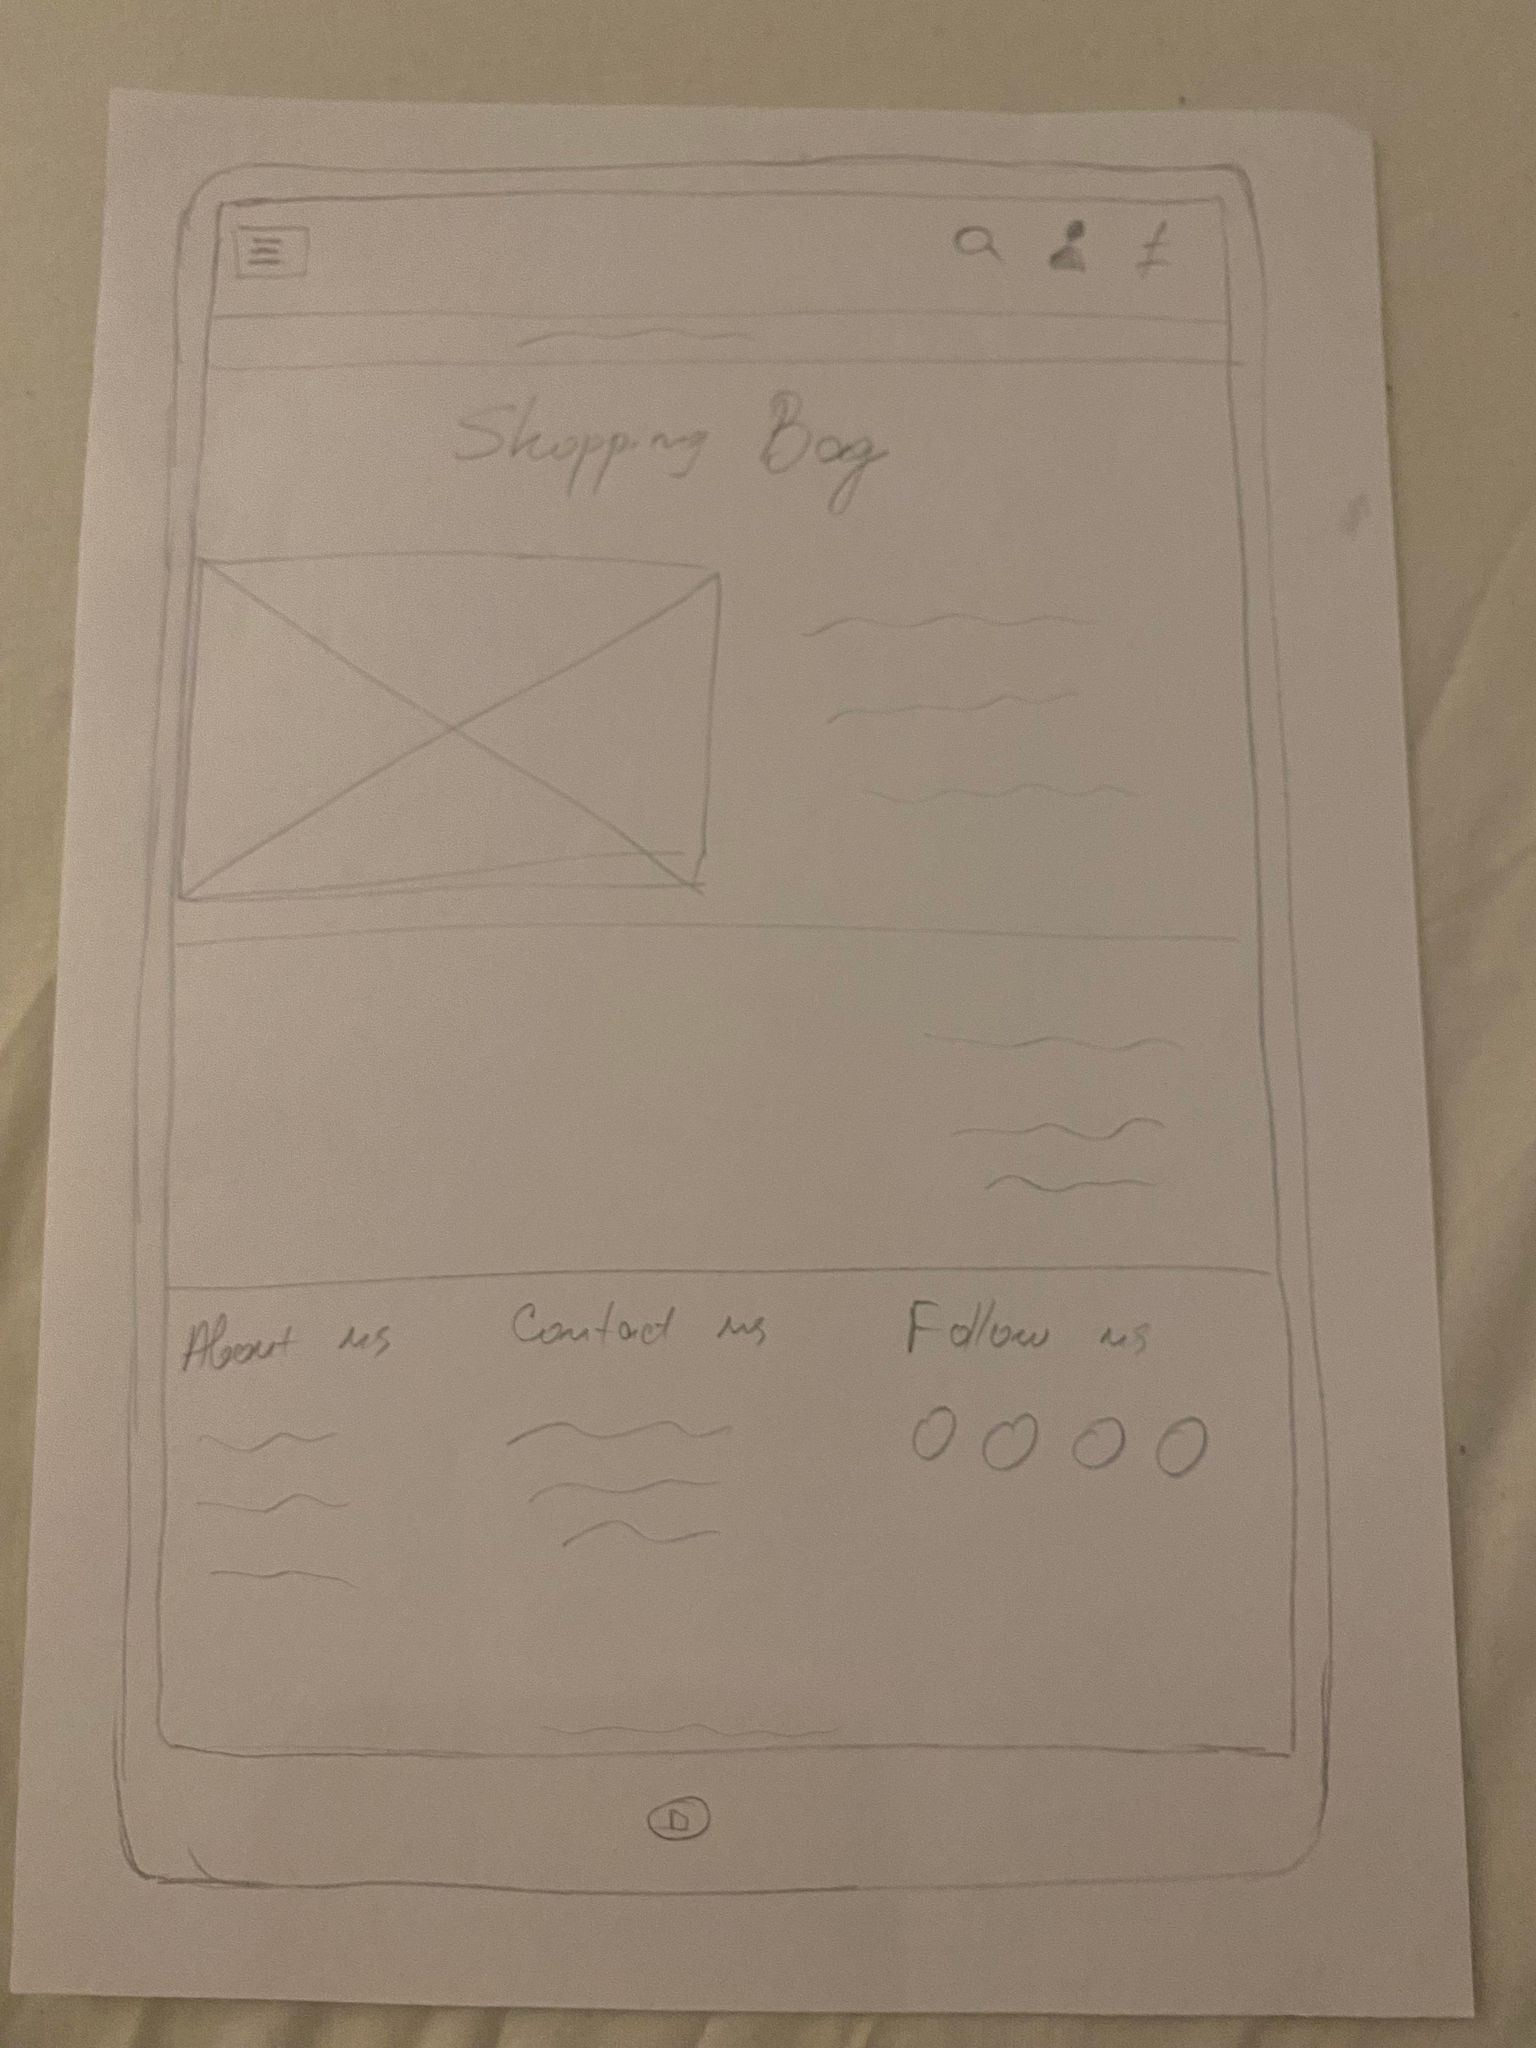 £
Shopping Bag
About us
Contact us
Follow us